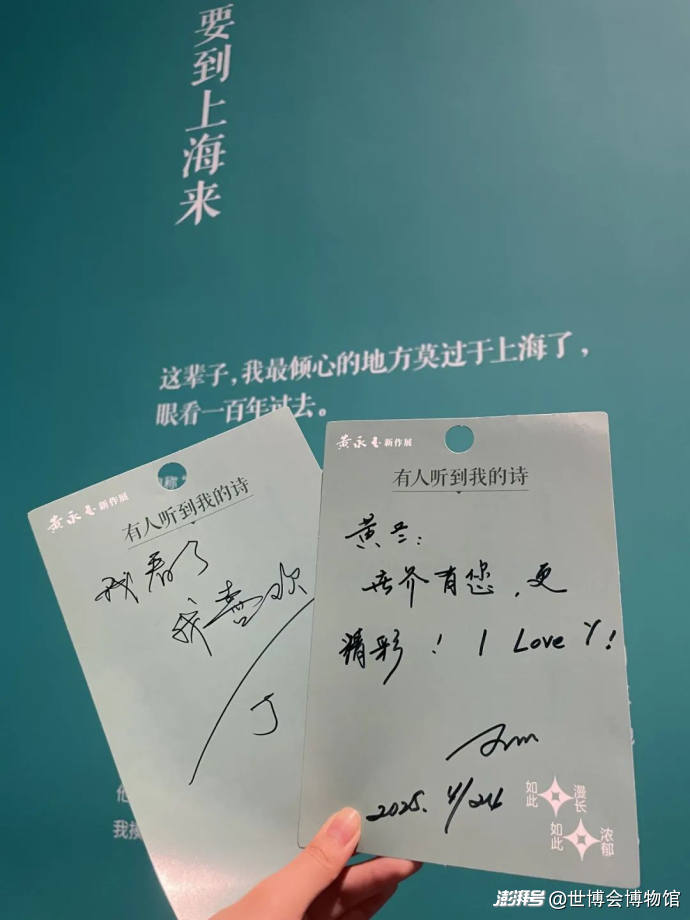 要到上海来
这辈子，我最倾心的地方莫过于上海了，
眼看一百年过去。
黄永玉 新作展
有人听到我的诗
我看了
我喜欢
J
黄永玉 新作展
有人听到我的诗
黄兰：
世界有您，更
精彩！I Love Y!
2025. 4/24
如此 漫长
如此 浓郁
他
我
澎湃号@世博会博物馆